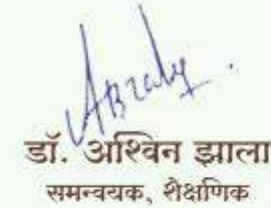 डॉ. अश्विन झाला
समन्वयक, शैक्षणिक